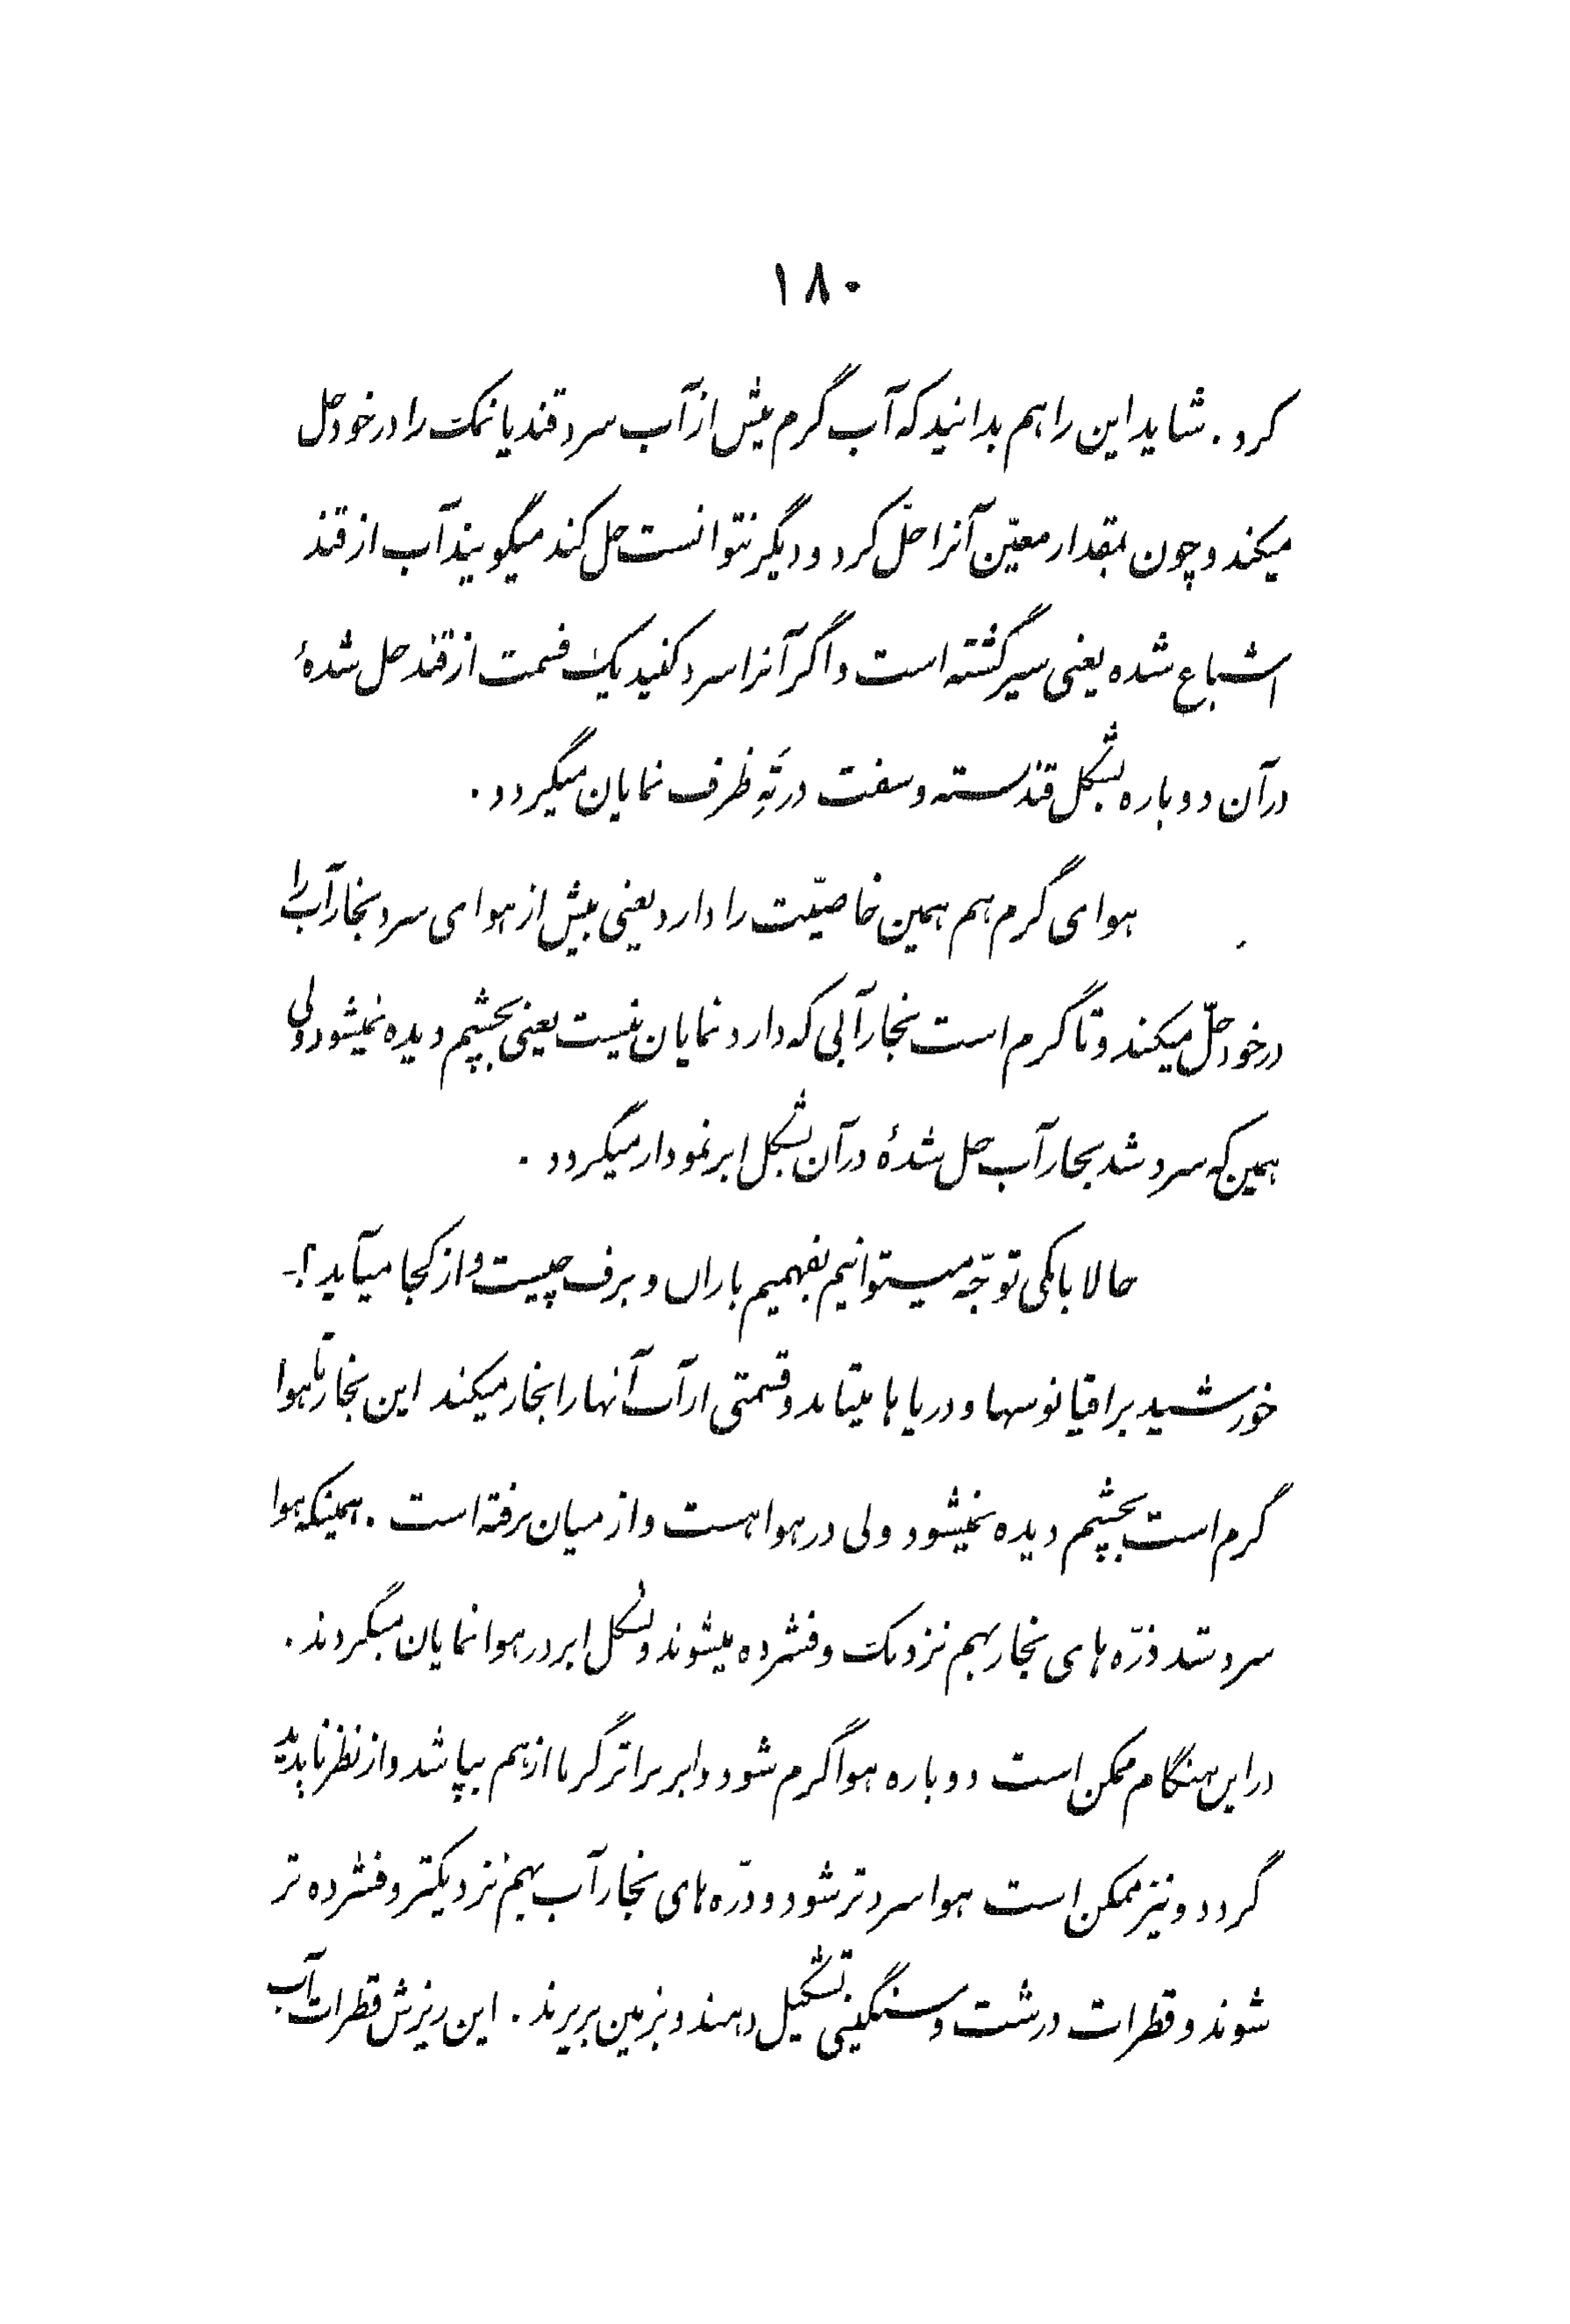 ۱۸۰
کرد . شاید این را هم بدانید که آب گرم بیش از آب سرد قند یا نمک را در خود حل
میکند و چون بمقدار معیّن آنرا حلّ کرد و دیگر نتوانست حل کند میگویند آب از قند
اشباع شده یعنی سیر گشته است و اگر آنرا سرد کنید یک قسمت از قند حل شدهٔ
در آن دوباره بشکل قند بسته و سفت در تَهِ ظرف نمایان میگردد .
هوای گرم هم همین خاصیّت را دارد یعنی بیش از هوای سرد بخار آب را
در خود حلّ میکند و تا گرم است بخار آبی که دارد نمایان نیست یعنی بچشم دیده نمیشود ولی
همین که سرد شد بخار آب حل شدهٔ در آن بشکل ابر نمودار میگردد .
حالا با کمی توجّه میتوانیم بفهمیم باران و برف چیست و از کجا میآید ؟-
خورشید بر اقیانوسها و دریاها میتابد و قسمتی از آب آنها را بخار میکند این بخار تا هوا
گرم است بچشم دیده نمیشود ولی در هوا هست و از میان نرفته است . همینکه هوا
سرد شد ذرّه های بخار بهم نزدیک و فشرده میشوند و بشکل ابر در هوا نمایان میگردند .
در این هنگام ممکن است دوباره هوا گرم شود و ابر بر اثر گرما از هم بپاشد و از نظر ناپدید
گردد و نیز ممکن است هوا سردتر شود و ذرّه های بخار آب بهم نزدیکتر و فشرده تر
شوند و قطرات درشت و سنگینی تشکیل دهند و بزمین بریزند . این ریزش قطرات آب